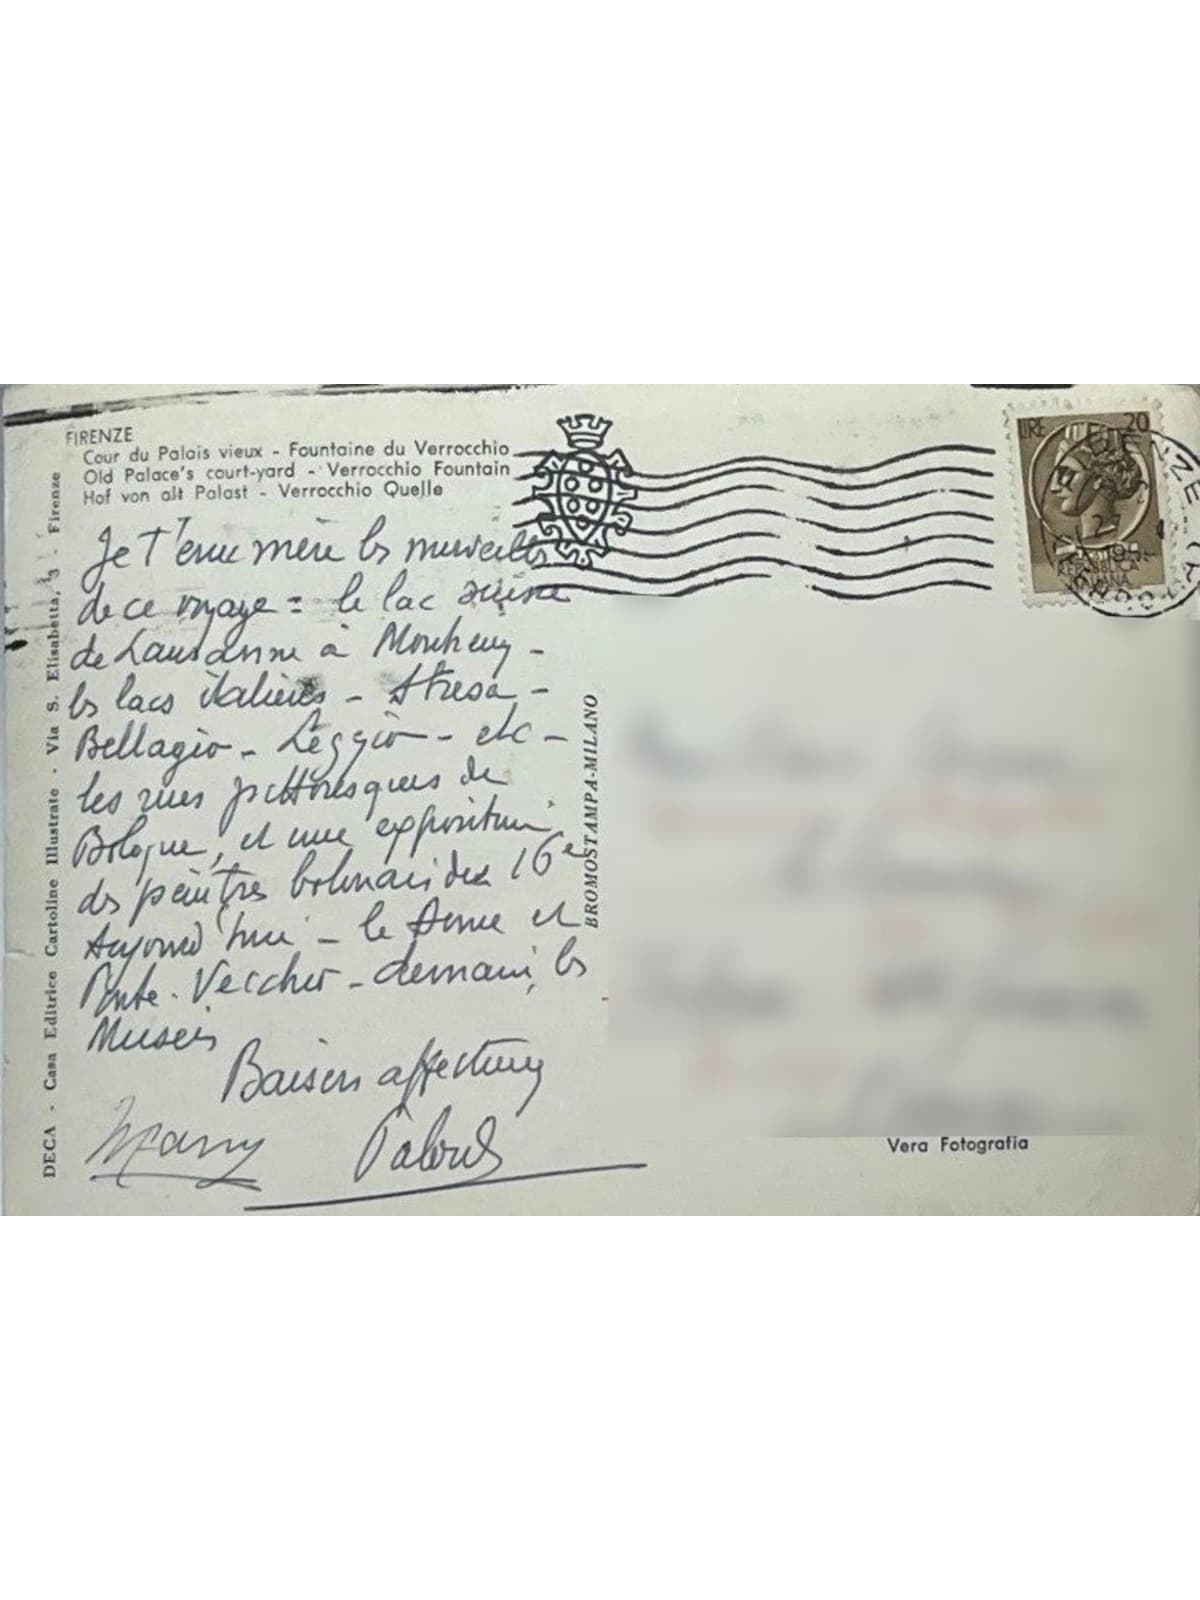 FIRENZE
Cour du Palais vieux - Fountaine du Verrocchio
Old Palace's court-yard - Verrocchio Fountain
Hof von alt Palast - Verrocchio Quelle
Je t'emmène les merveilles
de ce voyage = le lac suisse
de Lausanne à
les lacs italiens - Stresa -
Bellagio - - etc -
les rues pittoresques de
Bologne, et une exposition
des peintres bolonais du 16e
Aujourd'hui - le Dome et
Ponte - Vecchio - demain, les
Musées
Baisers affectueux
DECA - Casa Editrice Cartoline Illustrate - Via S. Elisabetta, 3 - Firenze
BROMOSTAMPA-MILANO
LIRE 20
FIRENZE
REPUBBLICA
ITALIANA
Vera Fotografia